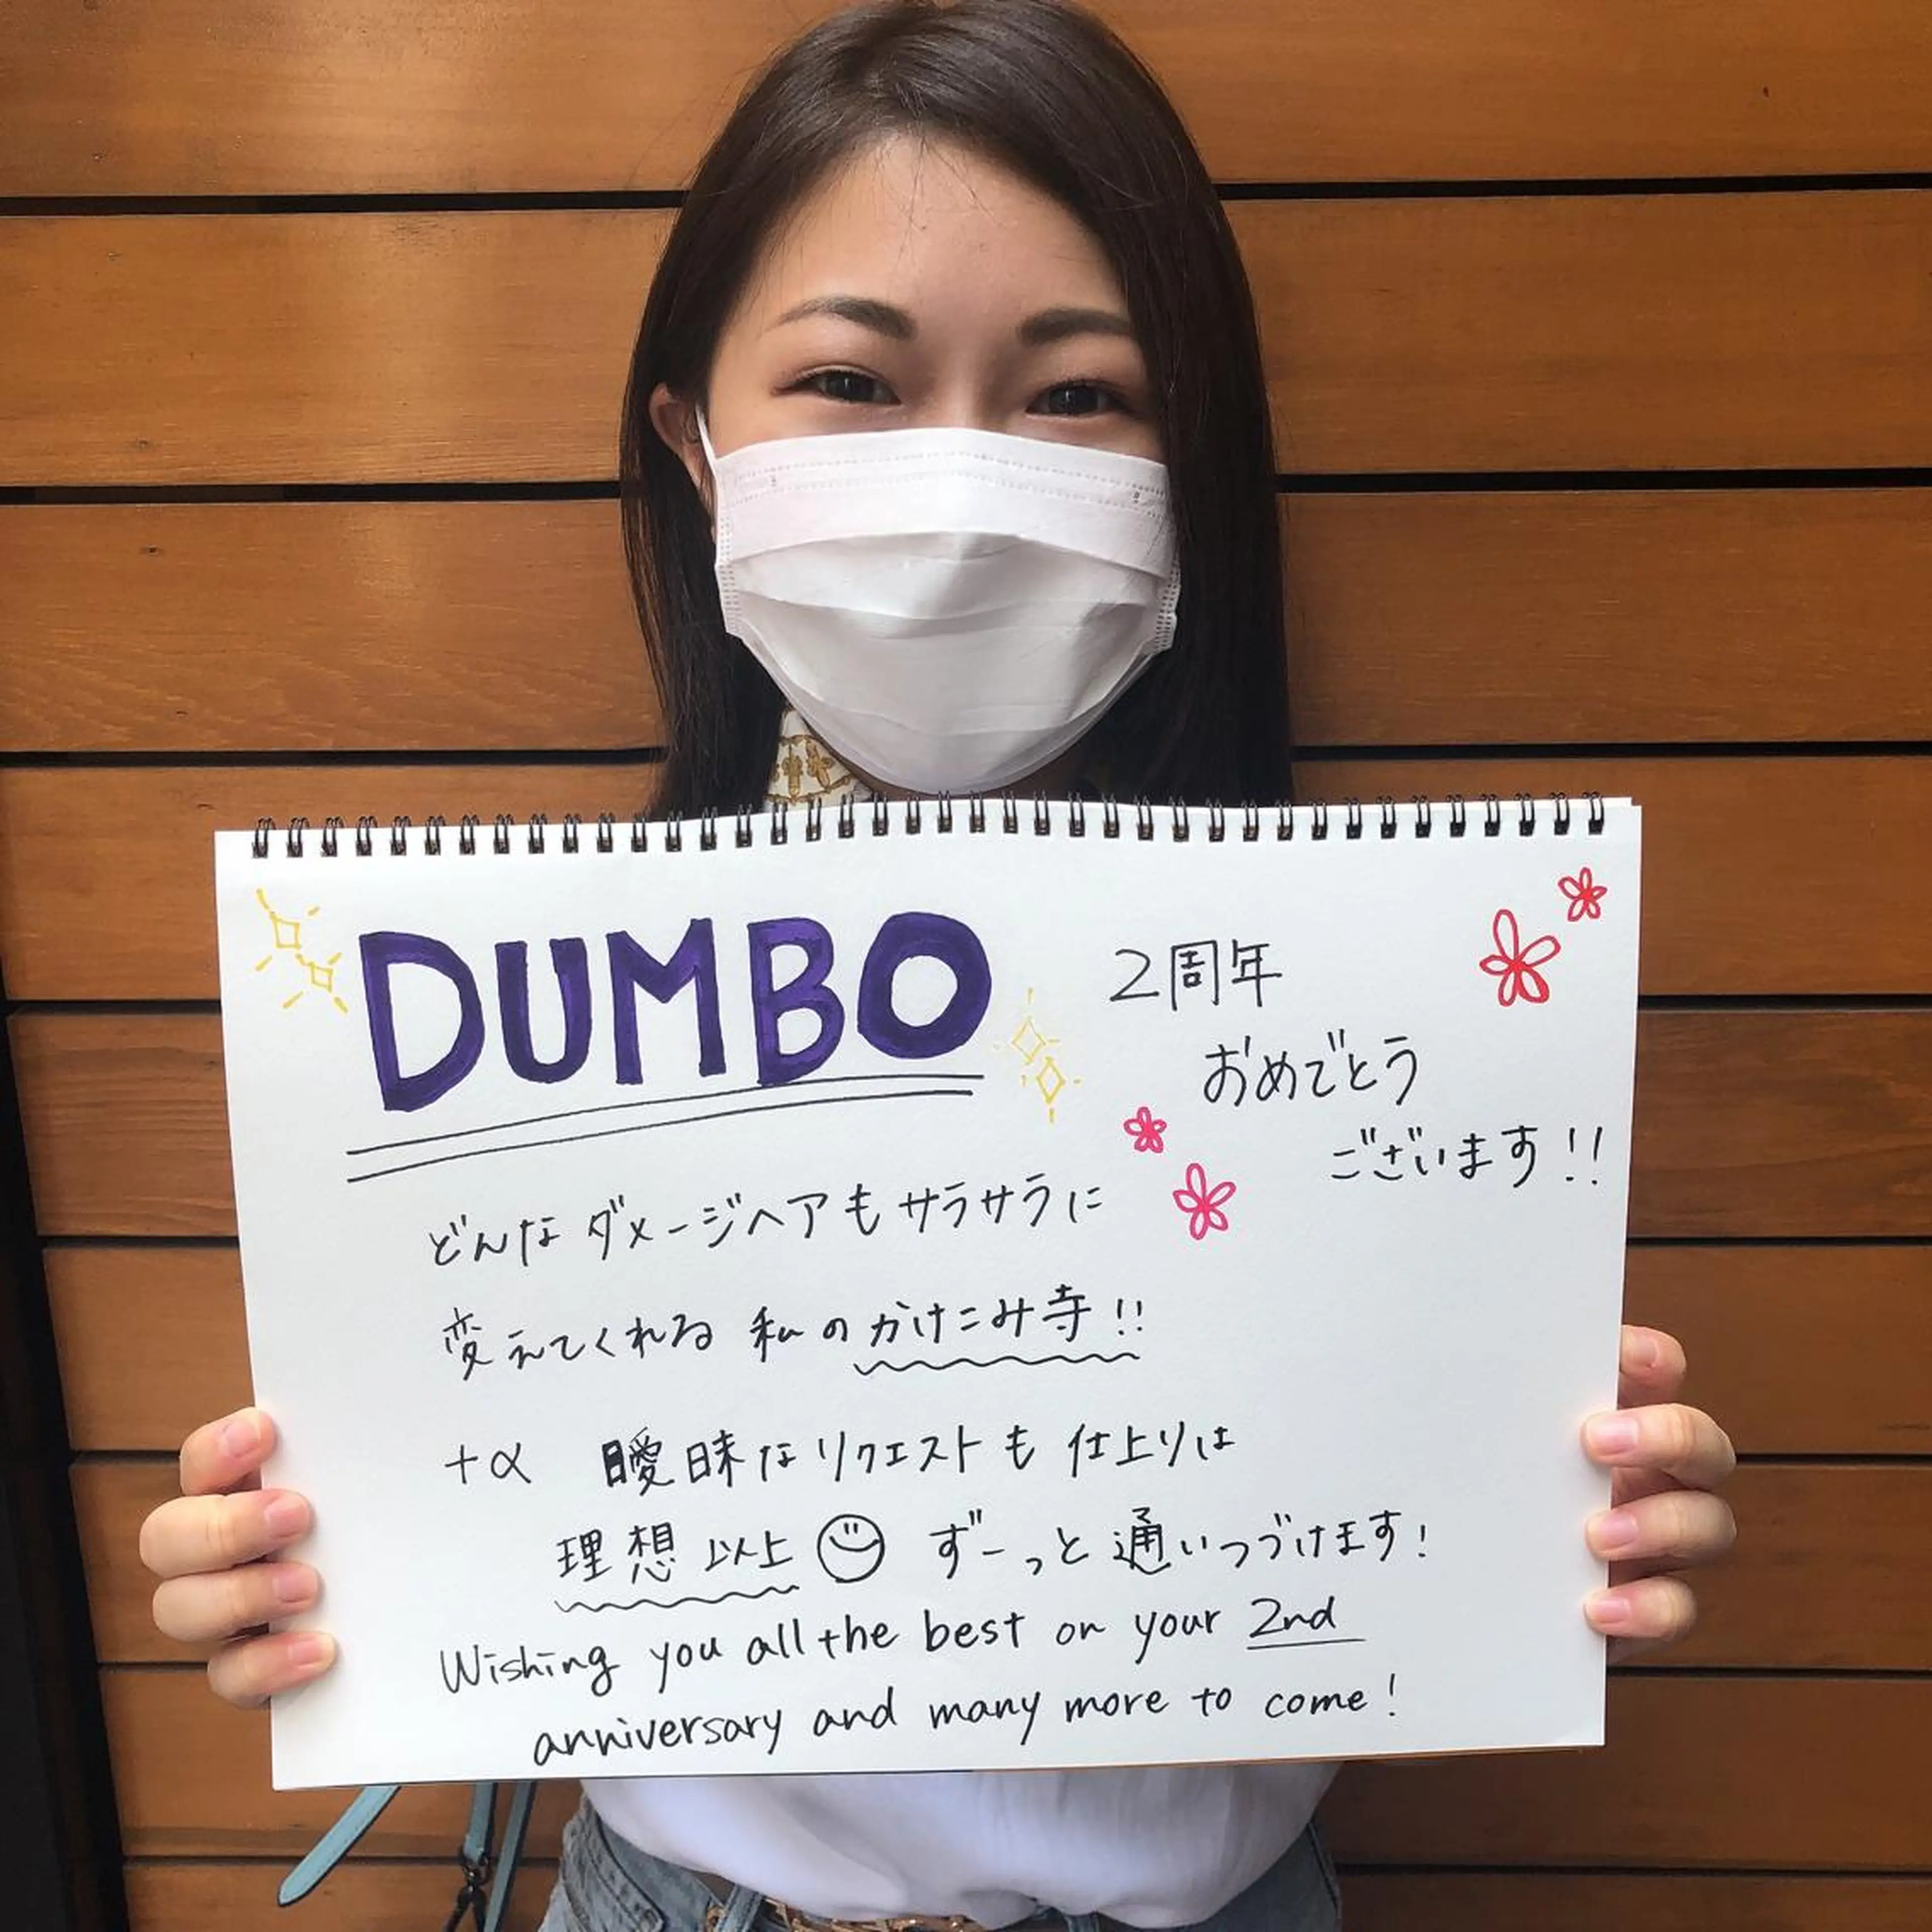 DUMBO
2周年
おめでとう
ございます!!
どんなダメージヘアもサラサラに
変えてくれる 私のかけこみ寺!!
+α 曖昧なリクエストも 仕上りは
理想以上 ずーっと通いつづけます!
Wishing you all the best on your 2nd
anniversary and many more to come!